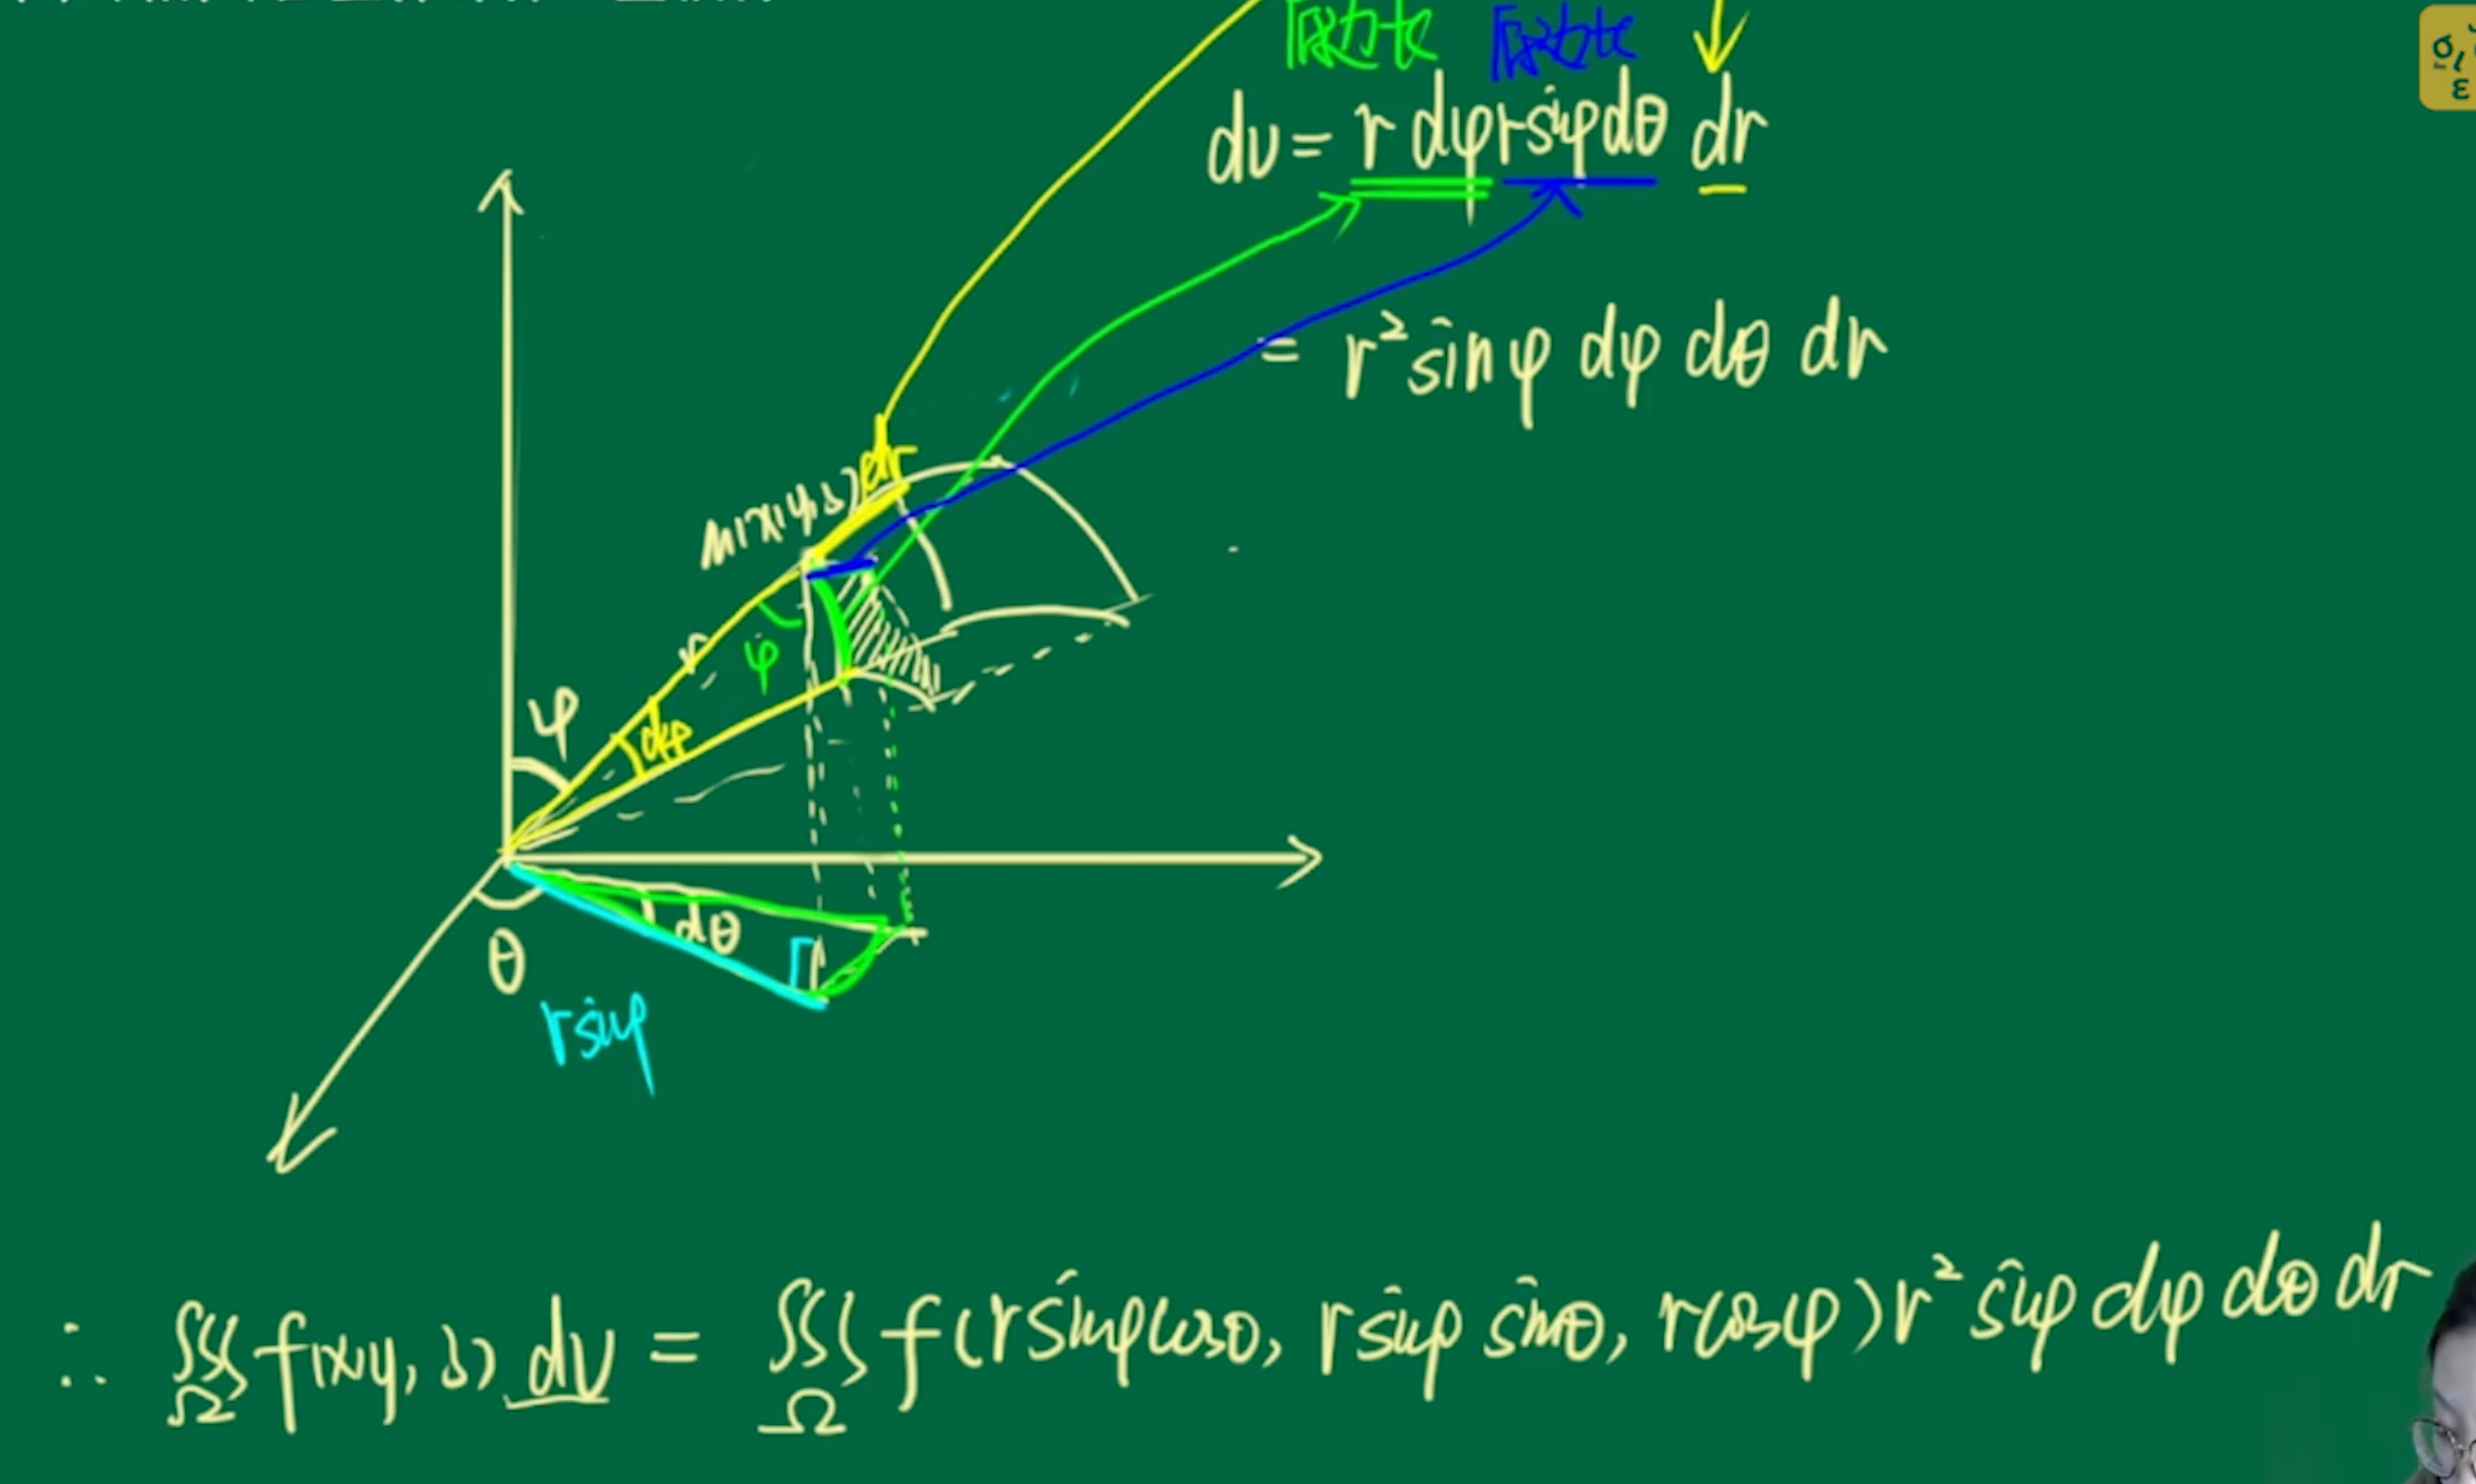 dv = r dφ r sinφ dθ dr
= r² sinφ dφ dθ dr
M(x,y,z)
dr
r
φ
φ
dφ
dθ
θ
r sinφ
∴ ∭Ω f(x,y,z) dv = ∭Ω f(r sinφ cosθ, r sinφ sinθ, r cosφ) r² sinφ dφ dθ dr